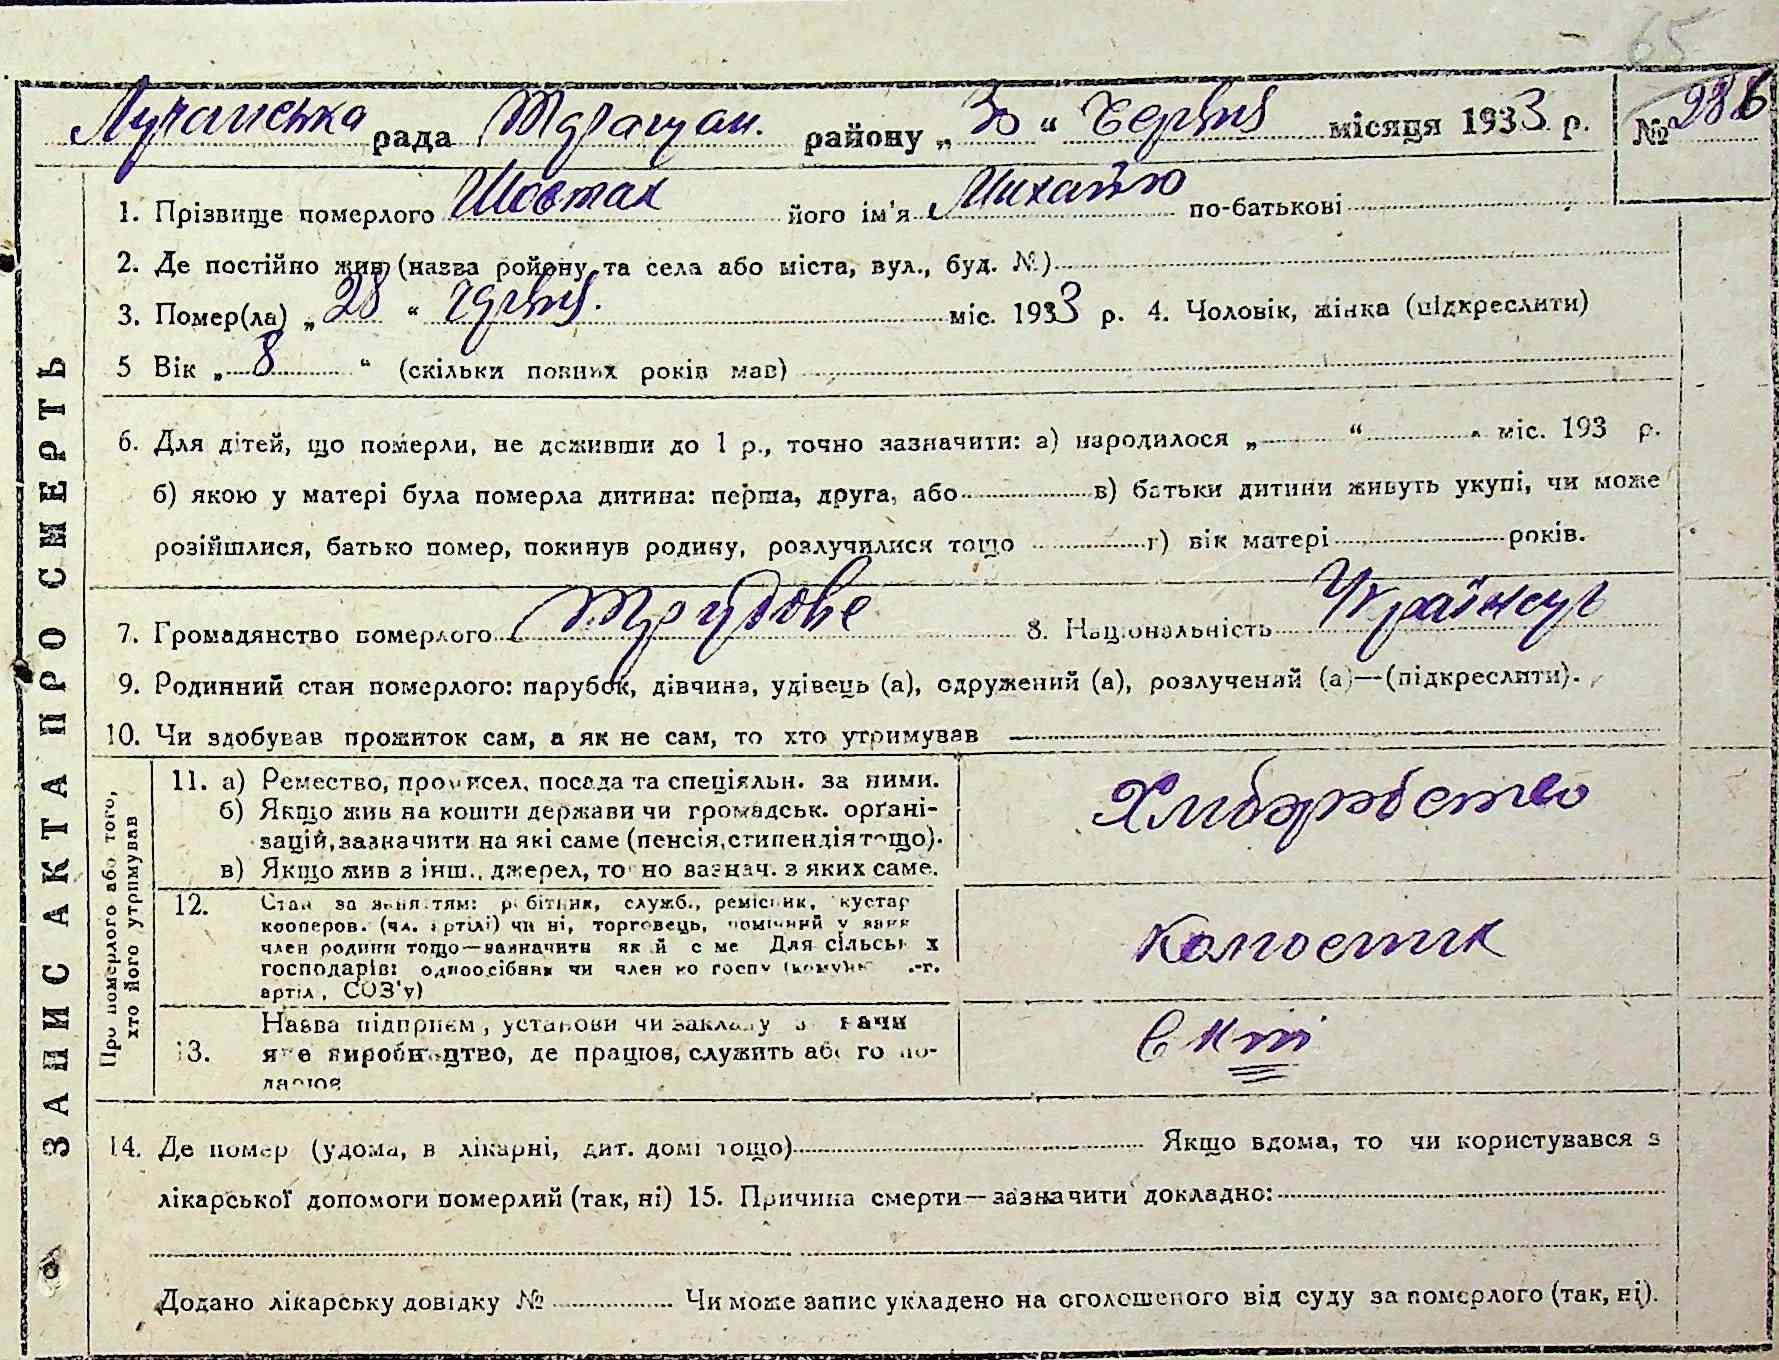 65
Лучанська рада Таращан. району „30“ Червня місяця 1933 р. № 286
ЗАПИС АКТА ПРО СМЕРТЬ
1. Прізвище померлого Шостак його ім'я Михайло по-батькові
2. Де постійно жив (назва ройону та села або міста, вул., буд. №)
3. Помер(ла) „28“ червня. міс. 1933 р. 4. Чоловік, жінка (підкреслити)
5 Вік „8“ (скільки повних років мав)
6. Для дітей, що померли, не доживши до 1 р., точно зазначити: а) народилося „ “ міс. 193 р.
б) якою у матері була померла дитина: перша, друга, або в) батьки дитини живуть укупі, чи може
розійшлися, батько помер, покинув родину, розлучилися тощо г) вік матері років.
7. Громадянство померлого Трудове 8. Національність
9. Родинний стан померлого: парубок, дівчина, удівець (а), одружений (а), розлучений (а)—(підкреслити).
10. Чи здобував прожиток сам, а як не сам, то хто утримував
Про померлого або того,
хто його утримував
11. а) Ремество, промисел, посада та спеціяльн. за ними.
б) Якщо жив на кошти держави чи громадськ. орґані-
зацій, зазначити на які саме (пенсія, стипендія тощо).
в) Якщо жив з інш. джерел, точно зазнач. з яких саме.
Хлиборобство
12. Стан за заняттям: робітник, служб., ремісник, кустар
кооперов. (чл. артілі) чи ні, торговець, помічний у занят
член родини тощо—зазначити який саме Для сільськ х
господарів: одноосібник чи член ко госпу (комуни .-г.
артіл, СОЗ'у)
Колгосник
13. Назва підприєм, установи чи закладу
яке виробництво, де працює, служить або го по-
давіює
14. Де помер (удома, в лікарні, дит. домі тощо) Якщо вдома, то чи користувався з
лікарської допомоги померлий (так, ні) 15. Причина смерти—зазначити докладно:
Додано лікарську довідку № Чи може запис укладено на оголошеного від суду за померлого (так, ні).